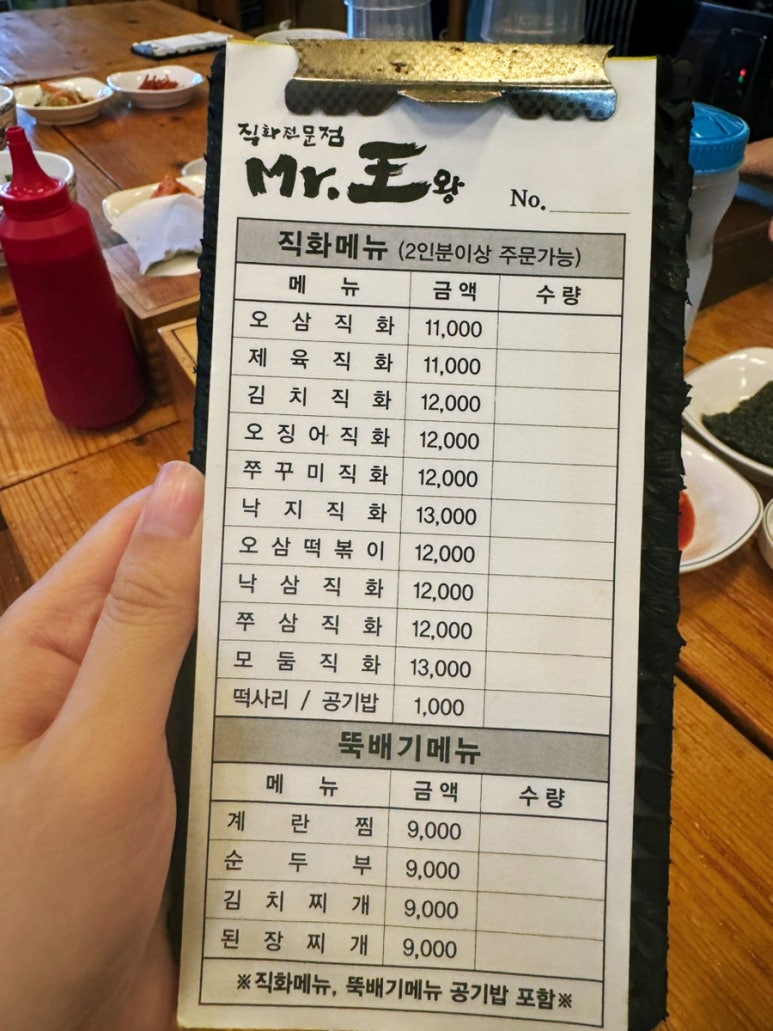 직화전문점
Mr.王왕
No.
직화메뉴 (2인분이상 주문가능)
메 뉴 금액 수량
오 삼 직 화 11,000
제 육 직 화 11,000
김 치 직 화 12,000
오징어직화 12,000
쭈꾸미직화 12,000
낙 지 직 화 13,000
오삼떡볶이 12,000
낙 삼 직 화 12,000
쭈 삼 직 화 12,000
모 둠 직 화 13,000
떡사리 / 공기밥 1,000
뚝배기메뉴
메 뉴 금액 수량
계 란 찜 9,000
순 두 부 9,000
김 치 찌 개 9,000
된 장 찌 개 9,000
※직화메뉴, 뚝배기메뉴 공기밥 포함※